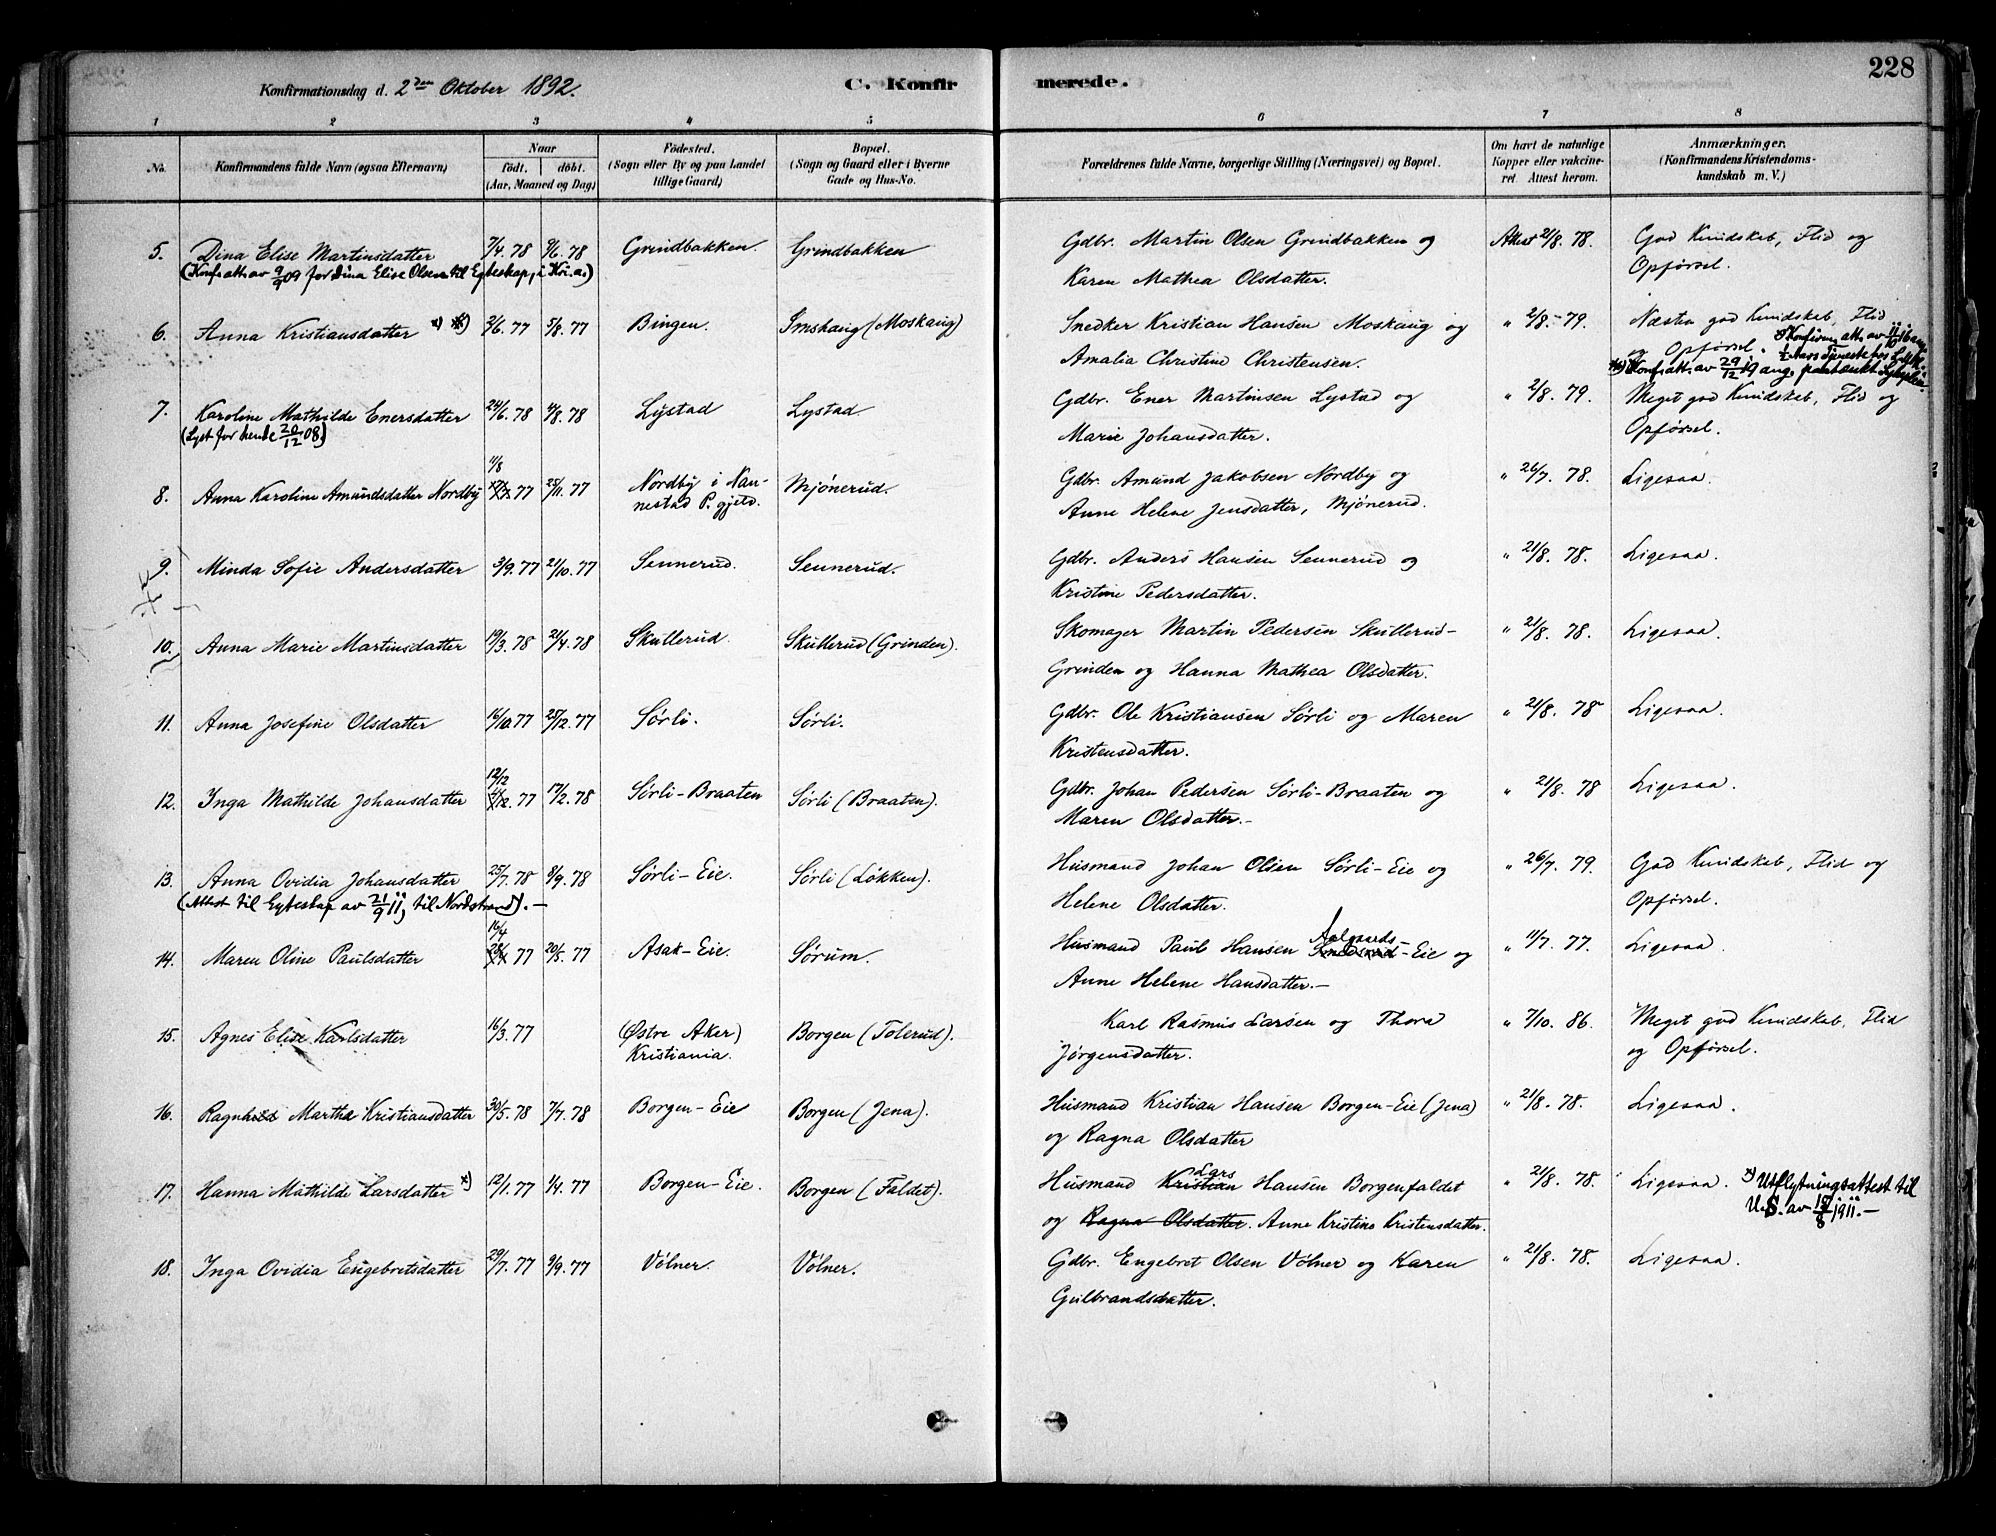 228
Konfirmationsdag d. 2den Oktober 1892.
C. Konfirmerede.
1 2 3 4 5 6 7 8
No.
Konfirmandens fulde Navn (ogsaa Efternavn)
Naar
födt. döbt.
(Aar, Maaned og Dag)
Födested.
(Sogn eller By og paa Landet
tillige Gaard)
Bopæl.
(Sogn og Gaard eller i Byerne
Gade og Hus-No.
Forældrenes fulde Navne, borgerlige Stilling (Næringsvei) og Bopæl.
Om havt de naturlige
Kopper eller vakcine-
ret. Attest herom.
Anmærkninger.
(Konfirmandens Kristendoms-
kundskab m. V.)
5. Dina Elise Martinsdatter 7/4. 78 9/6. 78 Grindbakken Grindbakken Gdbr. Martin Olsen Grindbakken og Attest 21/8. 78. God Kundskab, Flid og
(Konf.att. av 9/9 09 for Dina Elise Olsen til Egteskap, i Kri.a.) Karen Mathea Olsdatter. Opförsel.
6. Anna Kristiansdatter x) xx) 2/6. 77 5/8. 77 Bingen. Smshaug (Moskaug) Snedker Kristian Hansen Moskaug og " 2/8. 79. Næsten god Kundskab, Flid
Amalia Christine Christensen. og Opförsel.
xx) Konf.att. av 29/12 19 ang.
7. Karoline Mathilde Enersdatter 24/6. 78 4/8. 78 Lystad Lystad. Gdbr. Ener Martinsen Lystad og " 2/8. 79. Meget god Kundskab, Flid og
(Lyst for hende 20/12 08) Marie Johansdatter. Opförsel.
11/8
8. Anna Karoline Amundsdatter Nordby 77 25/11. 77 Nordby i Nan- Mjönerud. Gdbr. Amund Jakobsen Nordby og " 26/7. 78. Ligesaa.
nestad P.gjeld. Anne Helene Jensdatter, Mjönerud.
9. Minda Sofie Andersdatter 3/9. 77 21/10. 77 Sennerud. Sennerud. Gdbr. Anders Hansen Sennerud og " 21/8. 78. Ligesaa.
Kristine Pedersdatter.
10. Anna Marie Martinsdatter 19/3. 78 21/4. 78 Skullerud. Skullerud (Grinden). Skomager Martin Pedersen Skullerud- " 21/8. 78. Ligesaa.
Grinden og Hanna Mathea Olsdatter.
11. Anna Josefine Olsdatter 16/10. 77 25/12. 77 Sörli. Sörli. Gdbr. Ole Kristiansen Sörli og Maren " 21/8. 78 Ligesaa.
Kristensdatter.
12/12
12. Inga Mathilde Johansdatter 77 17/2. 78 Sörli-Braaten Sörli (Braaten). Gdbr. Johan Pedersen Sörli-Braaten og " 21/8. 78 Ligesaa.
Maren Olsdatter.-
13. Anna Ovidia Johansdatter 25/7. 78 8/9. 78 Sörli-Eie. Sörli (Lökken). Husmand Johan Olsen Sörli-Eie og " 26/7. 79. God Kundskab, Flid og
(Attest til Egteskap av 21/9 11, til Nordstrand).- Helene Olsdatter. Opförsel.
16/4 Aalgaards-
14. Maren Oline Paulsdatter 77 20/5. 77 Asak-Eie. Sörum. Husmand Paul Hansen -Eie og " 11/7. 77. Ligesaa.
Anne Helene Hansdatter.-
15. Agnes Elise Karlsdatter 16/3. 77 (Østre Aker) Borgen (Tolerud). Karl Rasmus Larsen og Thora " 7/10. 86. Meget god Kundskab, Flid
Kristiania. Jörgensdatter. og Opförsel.
16. Ragnhild Martha Kristiansdatter 30/5. 78 7/7. 78 Borgen-Eie Borgen (Jena). Husmand Kristian Hansen Borgen-Eie (Jena) " 21/8. 78. Ligesaa.
og Ragna Olsdatter
Lars
17. Hanna Mathilde Larsdatter x) 12/1. 77 1/4. 77 Borgen-Eie. Borgen (Faldet). Husmand Kristian Hansen Borgenfaldet " 21/8. 78. Ligesaa. x) Utflytningsattest til
og Ragna Olsdatter. Anne Kristine Kristensdatter. U.S. av 18/8 1911.-
18. Inga Ovidia Engebretsdatter 29/7. 77 9/9. 77 Völner. Völner. Gdbr. Engebret Olsen Völner og Karen " 21/8. 78. Ligesaa.
Gulbrandsdatter.